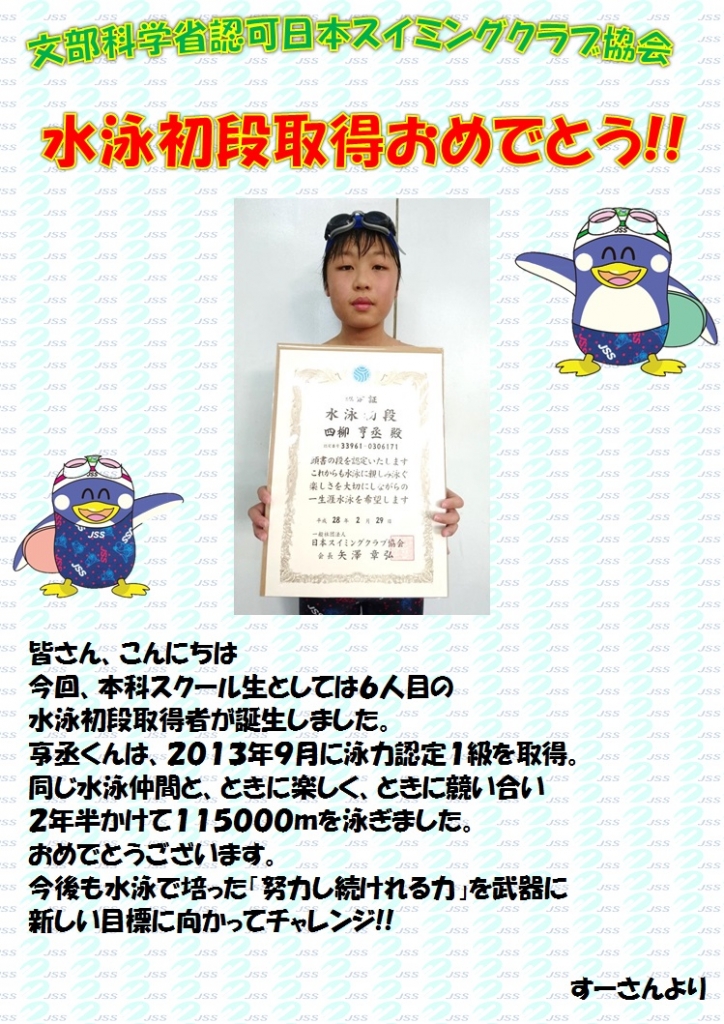 文部科学省認可日本スイミングクラブ協会
水泳初段取得おめでとう!!
水泳初段
四柳 亨丞 殿
33961-0306171
頭書の段を認定いたします
これからも水泳に親しみ泳ぐ
楽しさを大切にしながらの
一生涯水泳を希望します
平成 28 年 2 月 29 日
一般社団法人
日本スイミングクラブ協会
会長 矢澤 章弘
JSS
JSS
JSS
JSS
皆さん、こんにちは
今回、本科スクール生としては6人目の
水泳初段取得者が誕生しました。
亨丞くんは、2013年9月に泳力認定1級を取得。
同じ水泳仲間と、ときに楽しく、ときに競い合い
2年半かけて115000mを泳ぎました。
おめでとうございます。
今後も水泳で培った「努力し続けれる力」を武器に
新しい目標に向かってチャレンジ!!
すーさんより